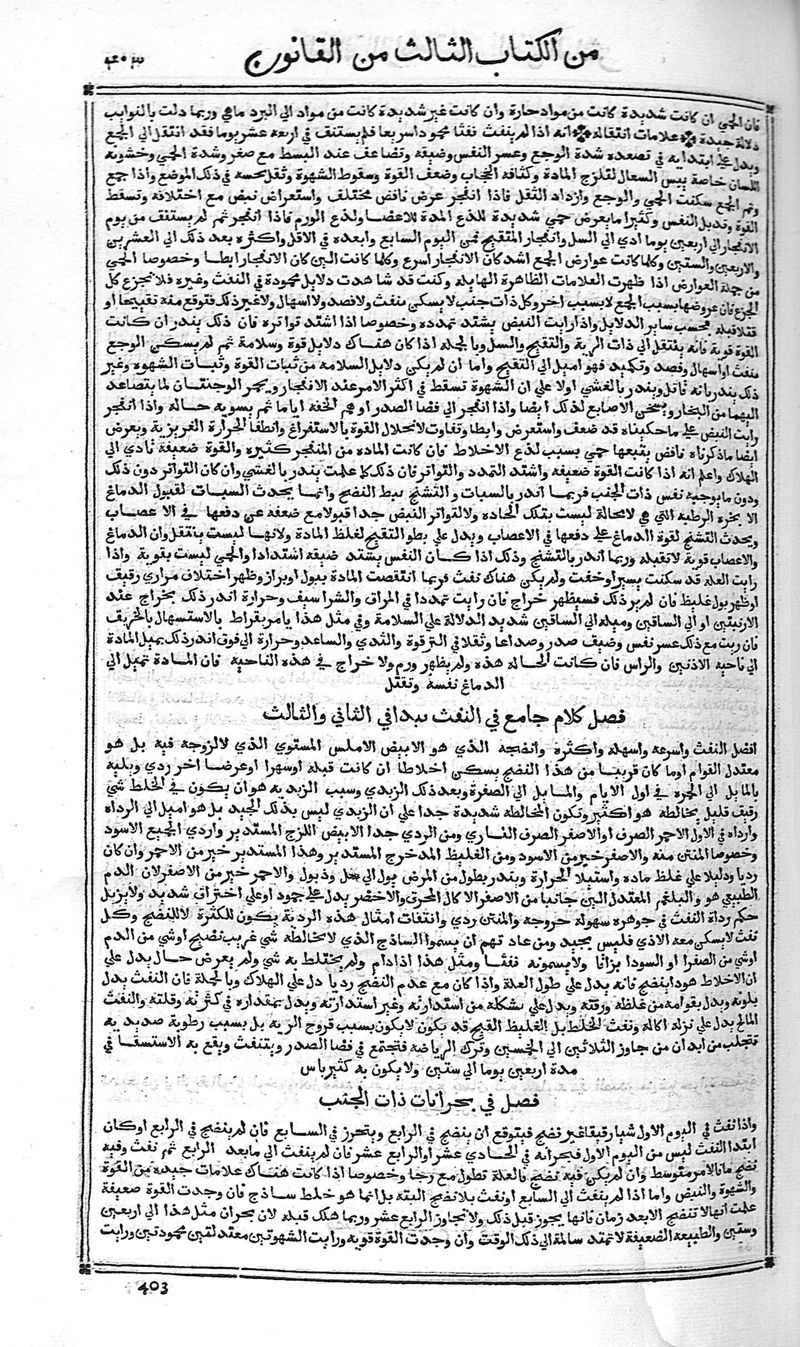 من الكتاب الثالث من القانون ٤٠٣
فان الحمي ان كانت شديدة كانت من مواد حارة وان كانت غير شديدة كانت من مواد الي البرد ماهي وربما دلت بالنوايب
دلالة جيدة علامات انتقاله انه اذا لم ينفث نفثا محمودا سريعا فلم يستنق في اربعه عشر يوما فقد انتقل الي الجمع
ويدل علي ابتدايه في تصعده شدة الوجع وعسر النفس وضيقه وتضاعف عند البسط مع صغر وشدة الحمي وخشونة
اللسان خاصة ويبس السعال لتلزج المادة وكثافه الحجاب وضعف القوة وسقوط الشهوة وثقل يحسه في ذلك الموضع واذا جمع
وتم الجمع سكنت الحمي والوجع وازداد الثقل فاذا انفجر عرض نافض مختلف واستعراض نبض مع اختلافه وتسقط
القوة وتذبل النفس وكثيرا ما يعرض حمي شديدة للذع المدة للاعضا ولذع الورم فاذا انفجر ثم لم يستنق من يوم
الانفجار الي اربعين يوما ادي الي السل وانفجار المتقيح في اليوم السابع وابعده في الاقل واكثره بعد ذلك الي العشرين
والاربعين والستين وكلما كانت عوارض الجمع اشد كان الانفجار اسرع وكلما كانت الين كان الانفجار ابطا وخصوصا الحمي
من جملة العوارض اذا ظهرت العلامات الظاهرة الهايله وكنت قد شاهدت دلايل محمودة في النفث وغيره فلا تجزع كل
الجزع فان عروضها بسبب الجمع لا بسبب اخر وكل ذات جنب لا يسكن منفث ولا فصد ولا اسهال ولا غير ذلك فتوقع منه تقيحا او
قتلا قبله بحسب ساير الدلايل واذا رايت النبض يشتد تمدده وخصوصا اذا اشتد تواتره فان ذلك ينذر ان كانت
القوة قوية فانه ينتقل الي ذات الرية والتقيح والسل وبالجملة اذا كان هناك دلايل قوة وسلامة ثم لم يسكن الوجع
بنفث او اسهال وفصد وتكميد فهو اميل الي التقيح واما ان لم يكن دلايل السلامه من ثبات القوة وثبات الشهوة وغير
ذلك ينذر بانه قاتل وينذر بالغشي اولا علي ان الشهوة تسقط في اكثر الامر عند الانفجار ويحمر الوجنتان لما يتصاعد
اليهما من البخار ويسخن الاصابع لذلك ايضا واذا انفجر الي فضا الصدر اوهم الخفة اياما ثم يسوء حاله واذا انفجر
رايت النبض علي ما حكيناه قد ضعف واستعرض وابطا وتفاوت لانحلال القوة بالاستفراغ وانطفا الحرارة الغريزية ويعرض
ايضا ما ذكرناه نافض يتبعها حمي بسبب لذع الاخلاط فان كانت الماده من المنفجر كثيره والقوة ضعيفه تادي الي
الهلاك واعلم انه اذا كانت القوة ضعيفه واشتد التمدد والتواتر فان ذلك كما علمت ينذر بالغشي وان كان التواتر دون ذلك
ودون ما يوجبه نفس ذات الجنب فربما انذر بالسبات والتشنج ببط النضج وانما يحدث السبات لقبول الدماغ
الابخره الرطبه التي هي لا محالة ليست بتلك الحاده ولا لتواتر النبض جدا قبولا مع ضعفه عن دفعها في الاعصاب
ويحدث التشنج لقوة الدماغ علي دفعها في الاعصاب ويدل علي بطو التقيح لغلظ المادة ولانها ليست ينتقل وان الدماغ
والاعصاب قوية لا تقبله وربما انذر بالتشنج وذلك اذا كان النفس يشتد ضيقه اشتدادا والحمي ليست بقوية واذا
رايت العله قد سكنت يسيرا وخفت ولم يكن هناك نفث فربما انتقصت المادة ببول او براز وظهر اختلاف مراري رقيق
او ظهر بول غليظ فان لم ير ذلك فسيظهر خراج فان رايت تمددا في المراق والشراسيف وحرارة انذر ذلك بخراج عند
الاربتين او الي الساقين وميله الي الساقين شديد الدلالة علي السلامة وفي مثل هذا يامر بقراط بالاستسهال بالخربق
فان ريت مع ذلك عسر نفس وضيق صدر وصداعا وثقلا في الترقوة والثدي والساعد وحرارة الي فوق انذر ذلك بميل المادة
الي ناحيه الاذنين والراس فان كانت الحاله هذه ولم يظهر ورم ولا خراج في هذه الناحيه فان المادة تميل الي
الدماغ نفسه وتقتل
فصل كلام جامع في النفث يبدا في الثاني والثالث
افضل النفث واسرعه واسهله واكثره وانضجه الذي هو الابيض الاملس المستوي الذي لا لزوجه فيه بل هو
معتدل القوام اوما كان قريبا من هذا النضج يسكن اخلاطا ان كانت قبله او سهرا او عرضا اخر ردي ويليه
المايل الي الحمره في اول الايام والمايل الي الصفرة وبعد ذلك الزبدي وسبب الزبديه هو ان يكون في الخلط شي
رقيق قليل يخالطه هو اكثير وتكون المخالطة شديدة جدا علي ان الزبدي ليس بذلك الجيد بل هو اميل الي الرداه
وارداه في الاول الاحمر الصرف او الاصفر الصرف الناري ومن الردي جدا الابيض اللزج المستدير واردي الجميع الاسود
وخصوصا المنتن منه والاصفر خير من الاسود ومن الغليظ المدحرج المستدير وهذا المستدير خير من الاحمر وان كان
رديا ودليلا علي غلظ ماده واستيلا الحرارة وينذر بطول من المرض يول الي سل وذبول والاحمر خير من الاصفر لان الدم
الطبيعي هو والبلغم المعتدل الين جانبا من الاصفر الاكال المحرق والاخضر يدل علي جمود او علي احتراق شديد ولا يزيل
حكم رداة النفث في جوهره سهولة خروجه والمنتن ردي وانتفاث امثال هذه الردية يكون للكثرة لا للنضج وكل
نفث لا يسكن معه الاذي فليس بجيد ومن عادتهم ان يسموا الساذج الذي لا يخالطه شي غريب نضيج اوشي من الدم
اوشي من الصفرا او السودا بزاقا ولا يسمونه نفثا ومثل هذا اذا دام ولم يختلط به شي ولم يعرض حال يدل علي
ان الاخلاط هو ذا ينضج فانه يدل علي طول العلة واذا كان مع عدم النضج رديا دل علي الهلاك وبالجملة فان النفث يدل
بلونه ويدل بقوامه من غلظه ورقته ويدل علي بشكله من استدارته وغير استدارته ويدل بمقداره في كثرته وقلته والنفث
المالح يدل علي نزلة اكالة ونفث الخلط بل الغليظ القيح قد يكون لا يكون بسبب قروح الرية بل بسبب رطوبة صديديه
تتحلب من ابدان من جاوز الثلاثين الي الخمسين وترك الرياضة فتجتمع في فضا الصدر وينتفث ويقع به الاستنقا في
مدة اربعين يوما الي ستين ولا يكون به كثير باس
فصل في بحرانات ذات الجنب
واذا نفث في اليوم الاول شيا رقيقا غير نضج فيتوقع ان ينضج في الرابع ويتحرز في السابع فان لم ينضج في الرابع اوكان
ابتدا النفث ليس من اليوم الاول فبحرانه في الحادي عشر او الرابع عشر فان لم ينفث الي ما بعد الرابع ثم نفث وفيه
نضج ما فالامر متوسط وان لم يكن فيه نضج فالعلة تطول مع رجا وخصوصا اذا كانت هناك علامات جيده من القوة
والشهوة والنبض واما اذا لم ينفث الي السابع او نفث بلا نضج البته بل انما هو خلط ساذج فان وجدت القوة ضعيفة
علمت انها لا تنضج الا بعد زمان فانها يجوز قبل ذلك ولا تجاوز الرابع عشر وربما هلك قبله لان بحران مثل هذا الي اربعين
وستين والطبيعه الضعيفة لا تمتد سالمة الي ذلك الوقت وان وجدت القوة قويه ورايت الشهوتين معتدلتين محمودتين ورايت
403